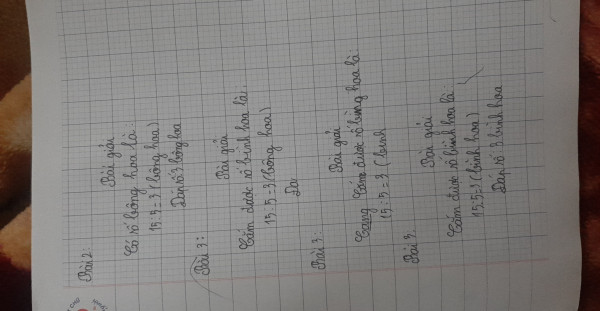 Bài 2
Bài giải
Có số bông hoa là:
15:5=3 (bông hoa)
Đáp số: 3 bông hoa
Bài 3:
Bài giải
Cắm được số bình hoa là:
15:5=3 (bông hoa)
Đá
Bài 3:
Bài giải
Cắm được số bông hoa là
15:5=3 (bình
Bài 3
Bài giải
Cắm được số bình hoa là
15:5=3 (bình hoa)
Đáp số 3 bình hoa